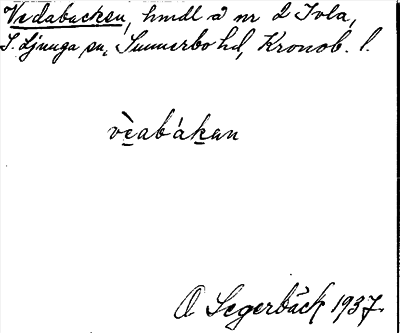 Vedabacken, hmdl å nr 2 Tvla,
S. Ljunga sn, Sunnerbo hd, Kronob. l.
vèabákan
O Segerbäck 1937.